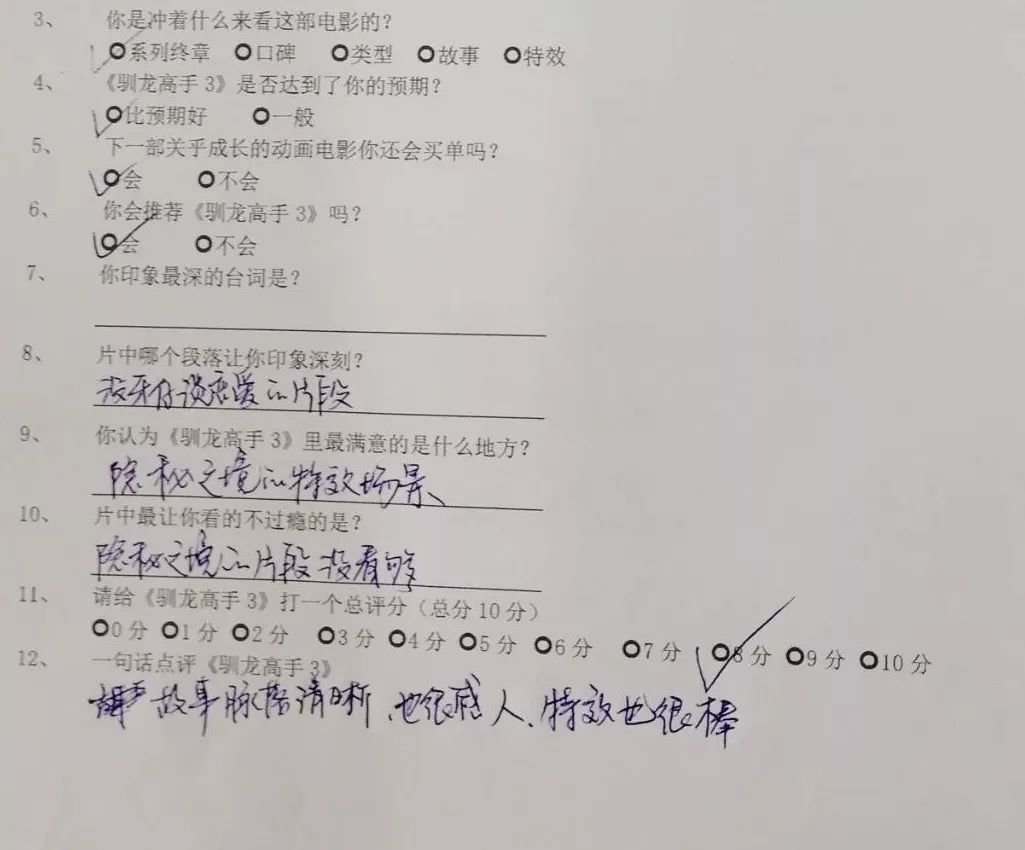 3、 你是冲着什么来看这部电影的？
系列终章 口碑 类型 故事 特效
4、 《驯龙高手3》是否达到了你的预期？
比预期好 一般
5、 下一部关乎成长的动画电影你还会买单吗？
会 不会
6、 你会推荐《驯龙高手3》吗？
会 不会
7、 你印象最深的台词是？
8、 片中哪个段落让你印象深刻？
没牙仔谈恋爱的片段
9、 你认为《驯龙高手3》里最满意的是什么地方？
隐秘之境的特效场景、
10、 片中最让你看的不过瘾的是？
隐秘之境的片段没看够
11、 请给《驯龙高手3》打一个总评分（总分10分）
0分 1分 2分 3分 4分 5分 6分 7分 8分 9分 10分
12、 一句话点评《驯龙高手3》
故事脉络清晰、也很感人、特效也很棒